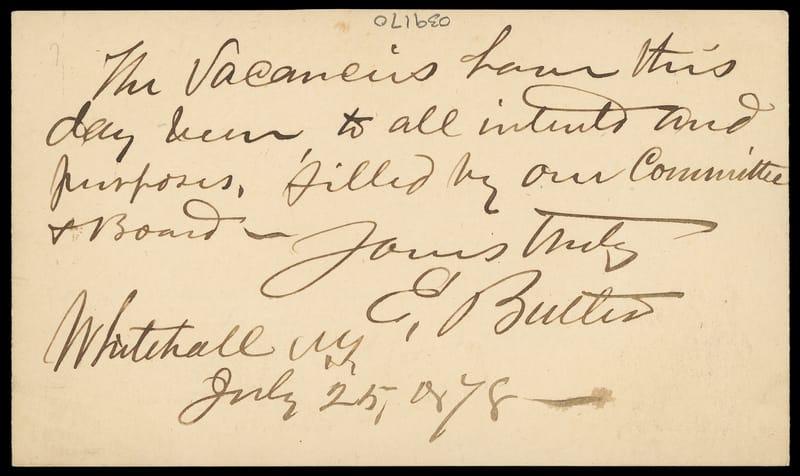 039170
The Vacancies have this
day been, to all intents and
purposes, filled by our Committee
& Board —
Yours truly
E. Butler
Whitehall NY
July 25, 1878 —